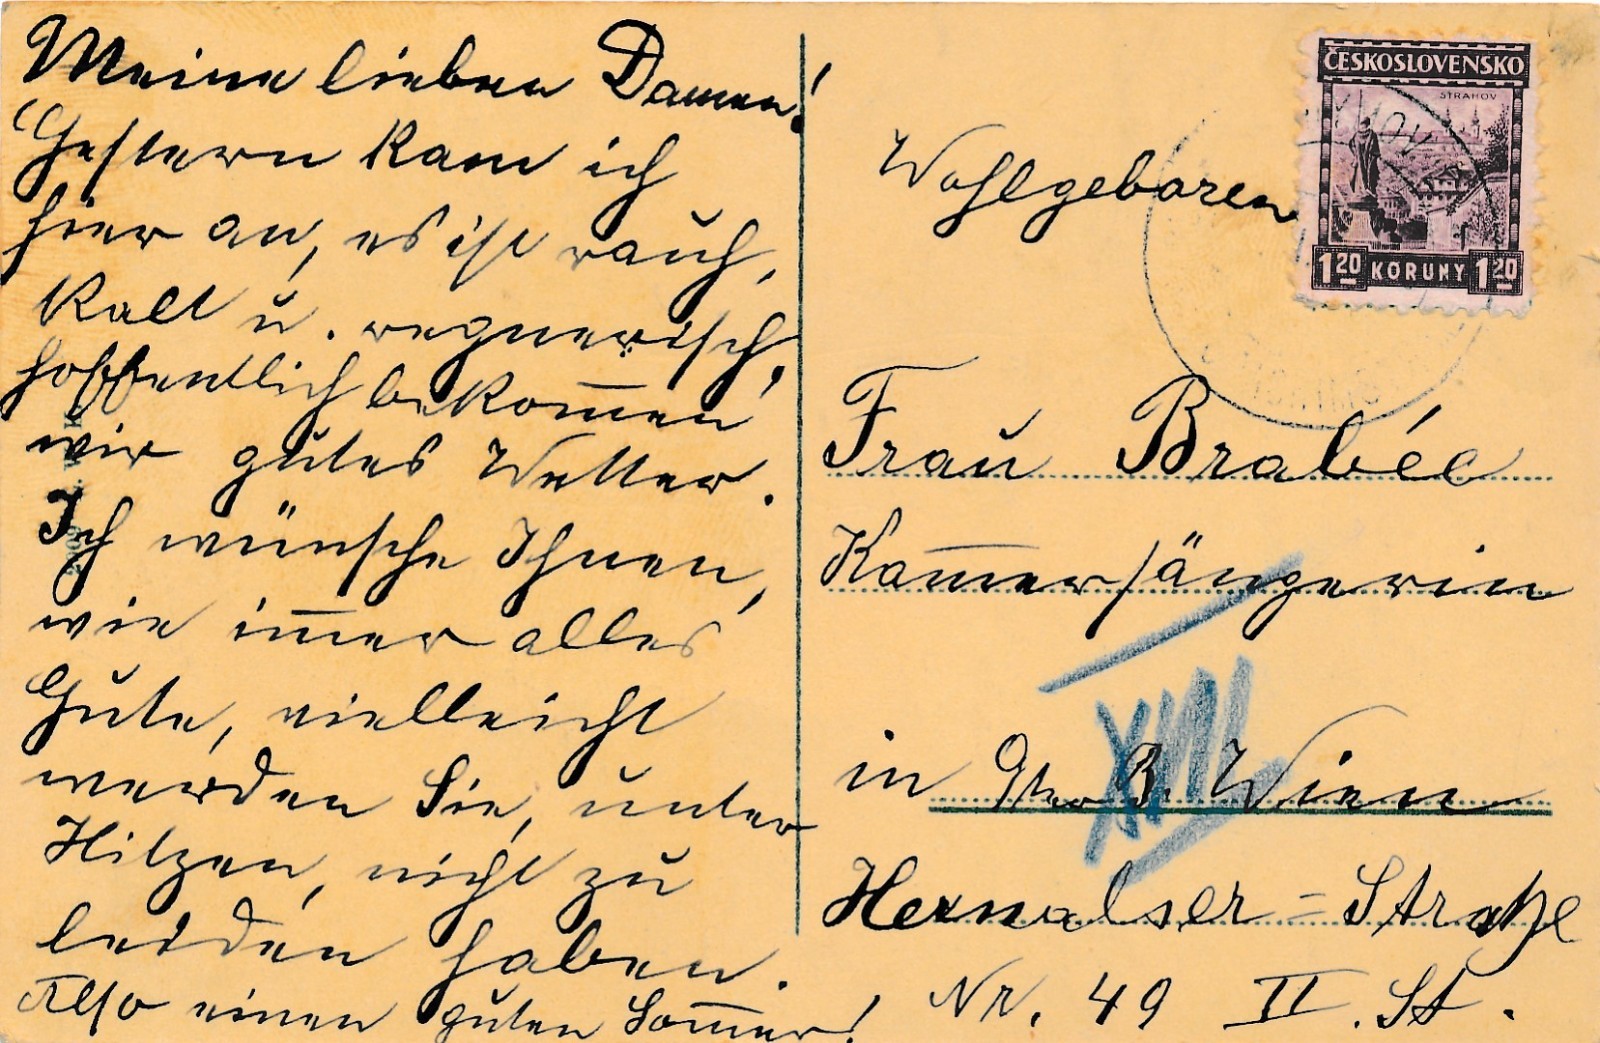 Meine lieben Damen!
Gestern kam ich
hier an, es ist rauh,
kalt u. regnerisch,
hoffentlich bekom̅en
wir gutes Wetter.
Ich wünsche Ihnen,
wie im̅er alles
Gute, vielleicht
werden Sie, unter
Hitzen, nicht zu
leiden haben.
Also einen guten Som̅er!
ČESKOSLOVENSKO
STRAHOV
1.20 KORUNY 1.20
Wohlgeboren
Frau Brabée
Kam̅ersängerin
in Wien
XVIII
Hernalser=Straße
Nr. 49 II. St.